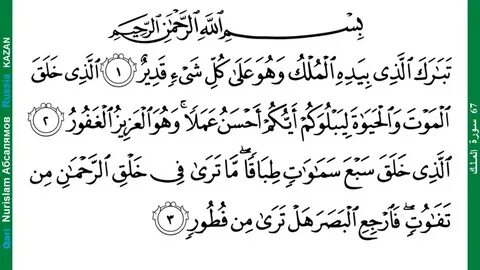 بِسْمِ اللَّهِ الرَّحْمَٰنِ الرَّحِيمِ
تَبَارَكَ الَّذِي بِيَدِهِ الْمُلْكُ وَهُوَ عَلَىٰ كُلِّ شَيْءٍ قَدِيرٌ ١ الَّذِي خَلَقَ
الْمَوْتَ وَالْحَيَوٰةَ لِيَبْلُوَكُمْ أَيُّكُمْ أَحْسَنُ عَمَلًا ۚ وَهُوَ الْعَزِيزُ الْغَفُورُ ٢
الَّذِي خَلَقَ سَبْعَ سَمَٰوَٰتٍ طِبَاقًا ۖ مَّا تَرَىٰ فِي خَلْقِ الرَّحْمَٰنِ مِن
تَفَٰوُتٍ ۖ فَارْجِعِ الْبَصَرَ هَلْ تَرَىٰ مِن فُطُورٍ ٣
67 سورة الملك
Qari Nurislam Абсалямов Russia KAZAN